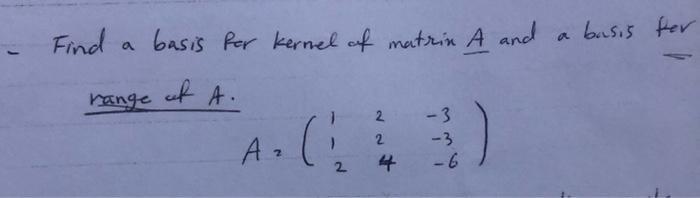 - Find a basis for kernel of matrix A and a basis for
range of A.
A = ( 1 2 -3
1 2 -3
2 4 -6 )